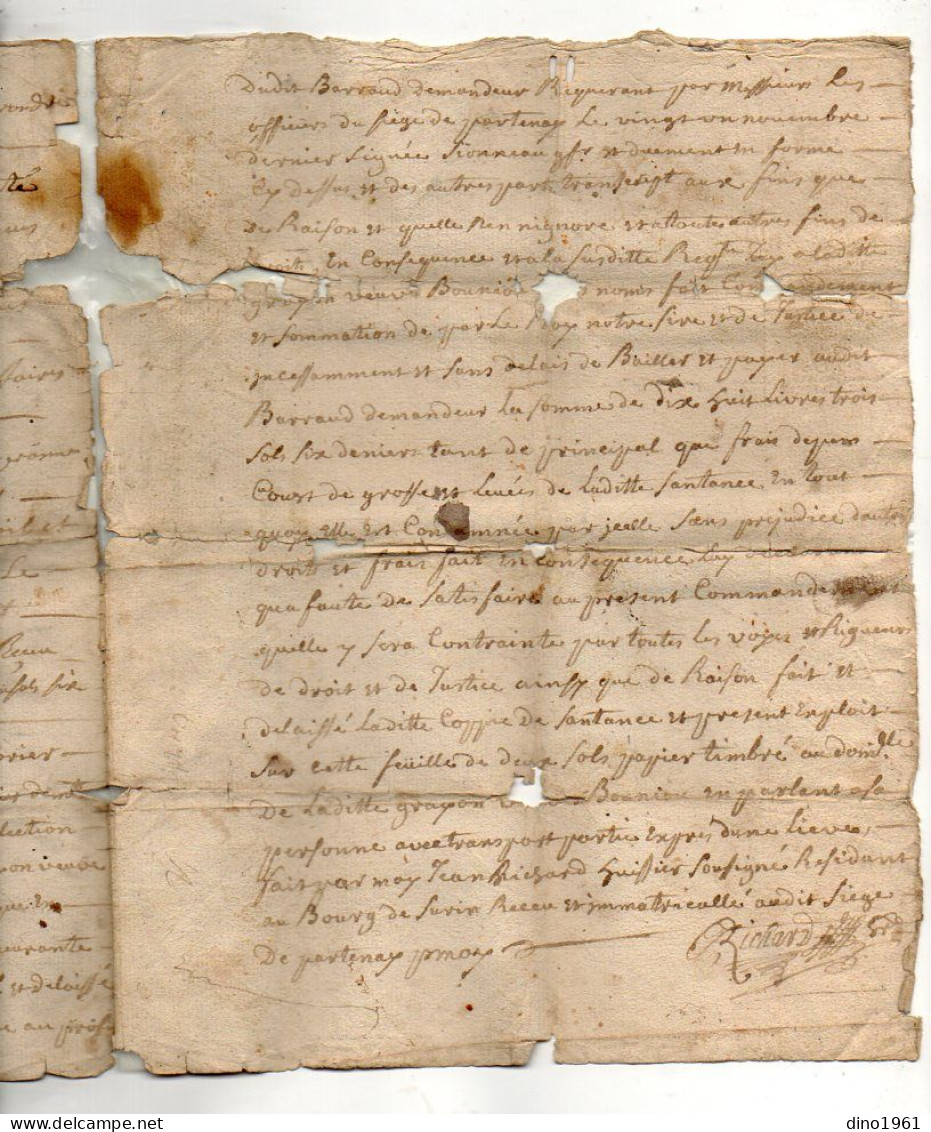 ronde
té
ues
Dudit Barraud demandeur Requerant par Messieurs les
officiers du siege de partenay le vingt un novembre
dernier Signée Sionneau gfr et duement en forme
Cy dessus et des autres parts transcript aux fins que
de Raison et quelle n'en nignore et a toutes autres fins de
En Consequence et a la susditte Reqte Jay a laditte
grapon veuve Bouniou nous fait Commandement
et sommation de par Le Roy notre sire et de Justice de
incessamment et sans delais de Bailler et payer audit
Barraud demandeur La somme de dix huit Livres trois
sols six deniers tant de principal que frais depuis
Coust de grosse et levées de laditte santance En tout
quoy Elle Est Condamnée par jcelle sans prejudice dautre
droits et frais fait en consequence Luy
qua faute de satisfaire au present Commandement
quelle y sera Contrainte par toutes les voyes et Rigueurs
de droit et de Justice ainsy que de Raison fait et
delaissé Laditte Coppie de santance et present Exploit
sur cette feüille de deux sols papier timbré au domlle
De Laditte grapon Bouniou en parlant a sa
personne avec transport partie Exprès dune lieue
fait par moy Jean Richard Huissier sousigné Residant
au Bourg de Surin Receu et immatricullé audit siege
De partenay pmoy
Richard
aires
let
Le
Receu
sols six
rier
lection
on veuve
que En
uarante
et delaissé
au prés
dino1961